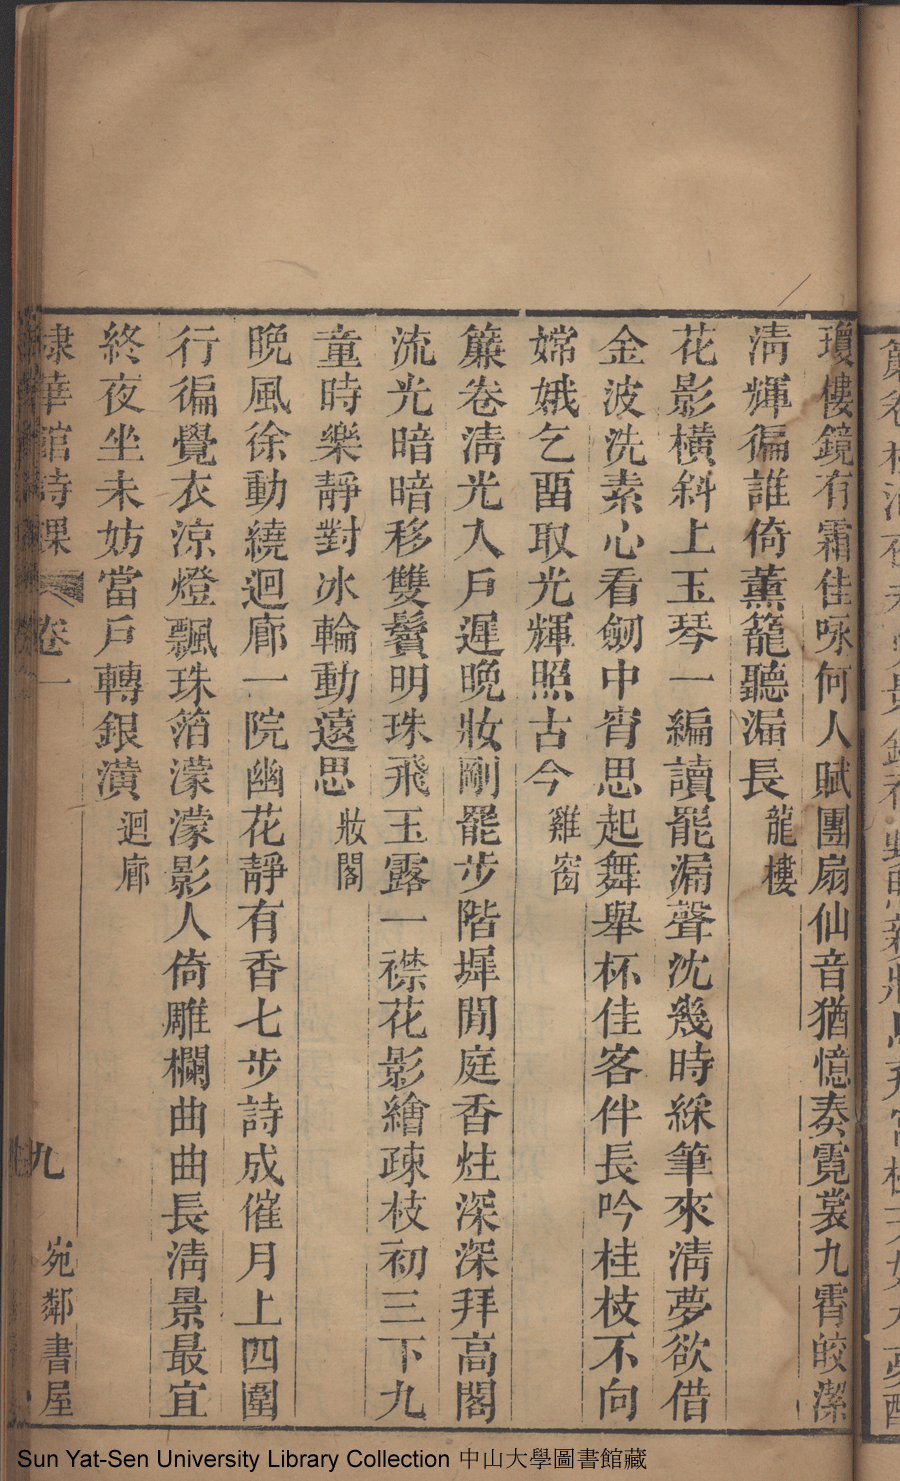 瓊樓鏡有霜佳咏何人賦團扇仙音猶憶奏霓裳九霄皎潔
淸輝徧誰倚薰籠聽漏長 龍樓
花影橫斜上玉琴一編讀罷漏聲沈幾時綵筆來淸夢欲借
金波洗素心看劒中宵思起舞舉杯佳客伴長吟桂枝不向
嫦娥乞畱取光輝照古今 雞窗
簾卷淸光入戶遲晚妝剛罷步階墀閒庭香炷深深拜高閣
流光暗暗移雙鬢明珠飛玉露一襟花影繪疎枝初三下九
童時樂靜對冰輪動遠思 妝閣
晚風徐動繞迴廊一院幽花靜有香七步詩成催月上四圍
行徧覺衣涼燈飄珠箔濛濛影人倚雕欄曲曲長淸景最宜
終夜坐未妨當戶轉銀潢 迴廊
棣華館詩課 卷一 九 宛鄰書屋
Sun Yat-Sen University Library Collection 中山大學圖書館藏